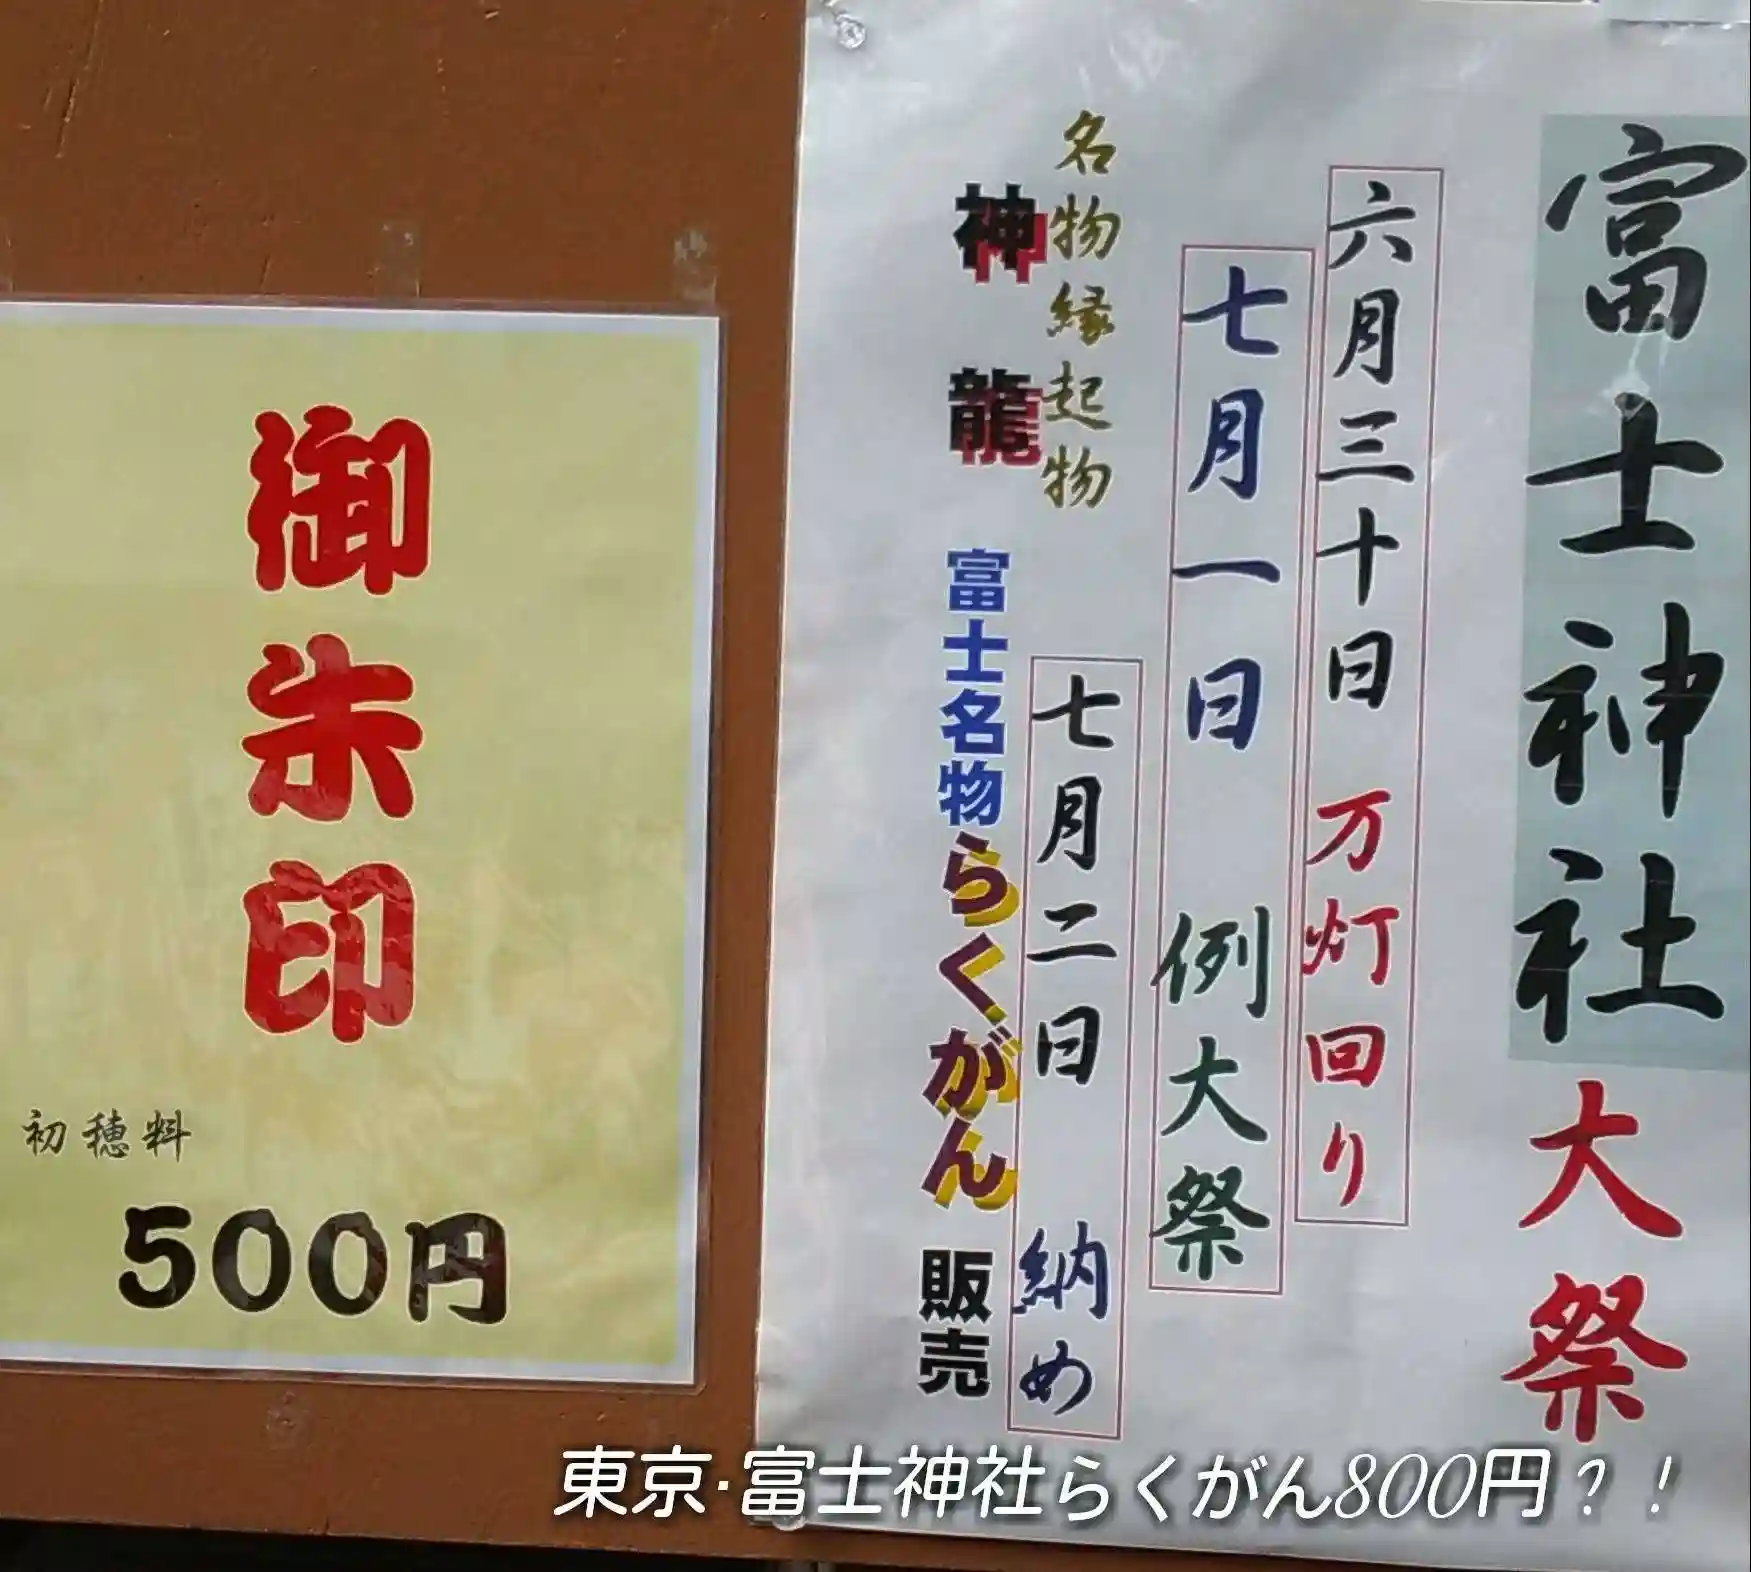 富士神社大祭
六月三十日 万灯回り
七月一日 例大祭
七月二日 納め
名物縁起物
神龍
富士名物らくがん 販売
御朱印
初穂料
500円
東京·富士神社らくがん800円?!